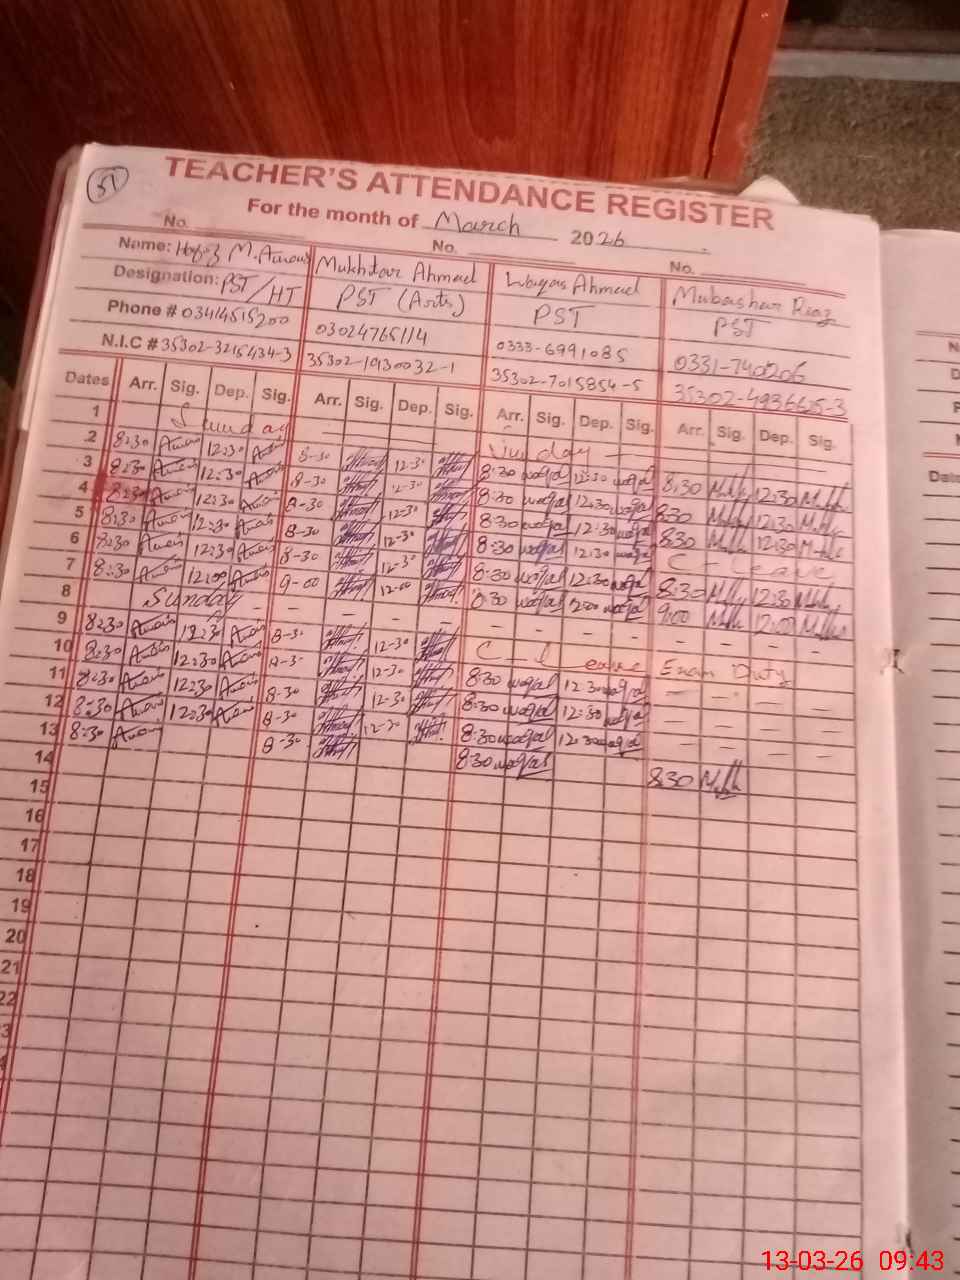 51
TEACHER'S ATTENDANCE REGISTER
For the month of March 2026
No. No. No.
Name: Hafiz M. Mukhtar Ahmad Waqas Ahmed Mubashar Riaz
Designation: PST/HT PST (Arts) PST PST
Phone # 03414515200 03024765114 0333-6991085 0331-740206
N.I.C # 35302-3215434-3 35302-1930032-1 35302-7015854-5 35302-4936615-3
Dates Arr. Sig. Dep. Sig. Arr. Sig. Dep. Sig. Arr. Sig. Dep. Sig. Arr. Sig. Dep. Sig.
1 Sunday — — — — Sunday —
2 8:30 12:30 8-30 12-30 8:30 waqas 12:30 waqas 8:30 12:30
3 8:30 12:30 8-30 12-30 8:30 waqas 12:30 waqas 8:30 12:30
4 8:30 12:30 8-30 12-30 8:30 waqas 12:30 waqas 8:30 12:30
5 8:30 12:30 8-30 12-30 8:30 waqas 12:30 waqas C-Leave
6 8:30 12:30 8-30 12-30 8:30 waqas 12:30 waqas 8:30 12:30
7 8:30 12:00 9-00 12-00 8:30 waqas 12:00 waqas 9:00 12:00
8 Sunday — — — — — — — — — — — — —
9 8:30 12:30 8-30 12-30 C-Leave Exam Duty
10 8:30 12:30 8-30 12-30 8:30 waqas 12:30 waqas — — — —
11 8:30 12:30 8-30 12-30 8:30 waqas 12:30 waqas — — — —
12 8:30 12:30 8-30 12-30 8:30 waqas 12:30 waqas — — — —
13 8:30 8-30 8:30 waqas 8:30
14
15
16
17
18
19
20
21
22
13-03-26 09:43